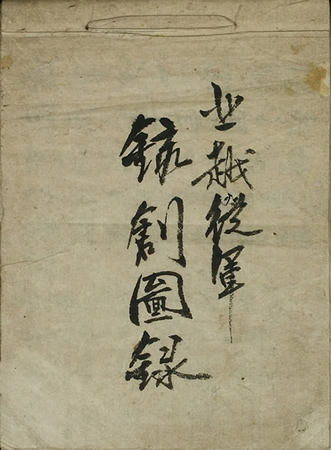 北越従軍
銃創図録